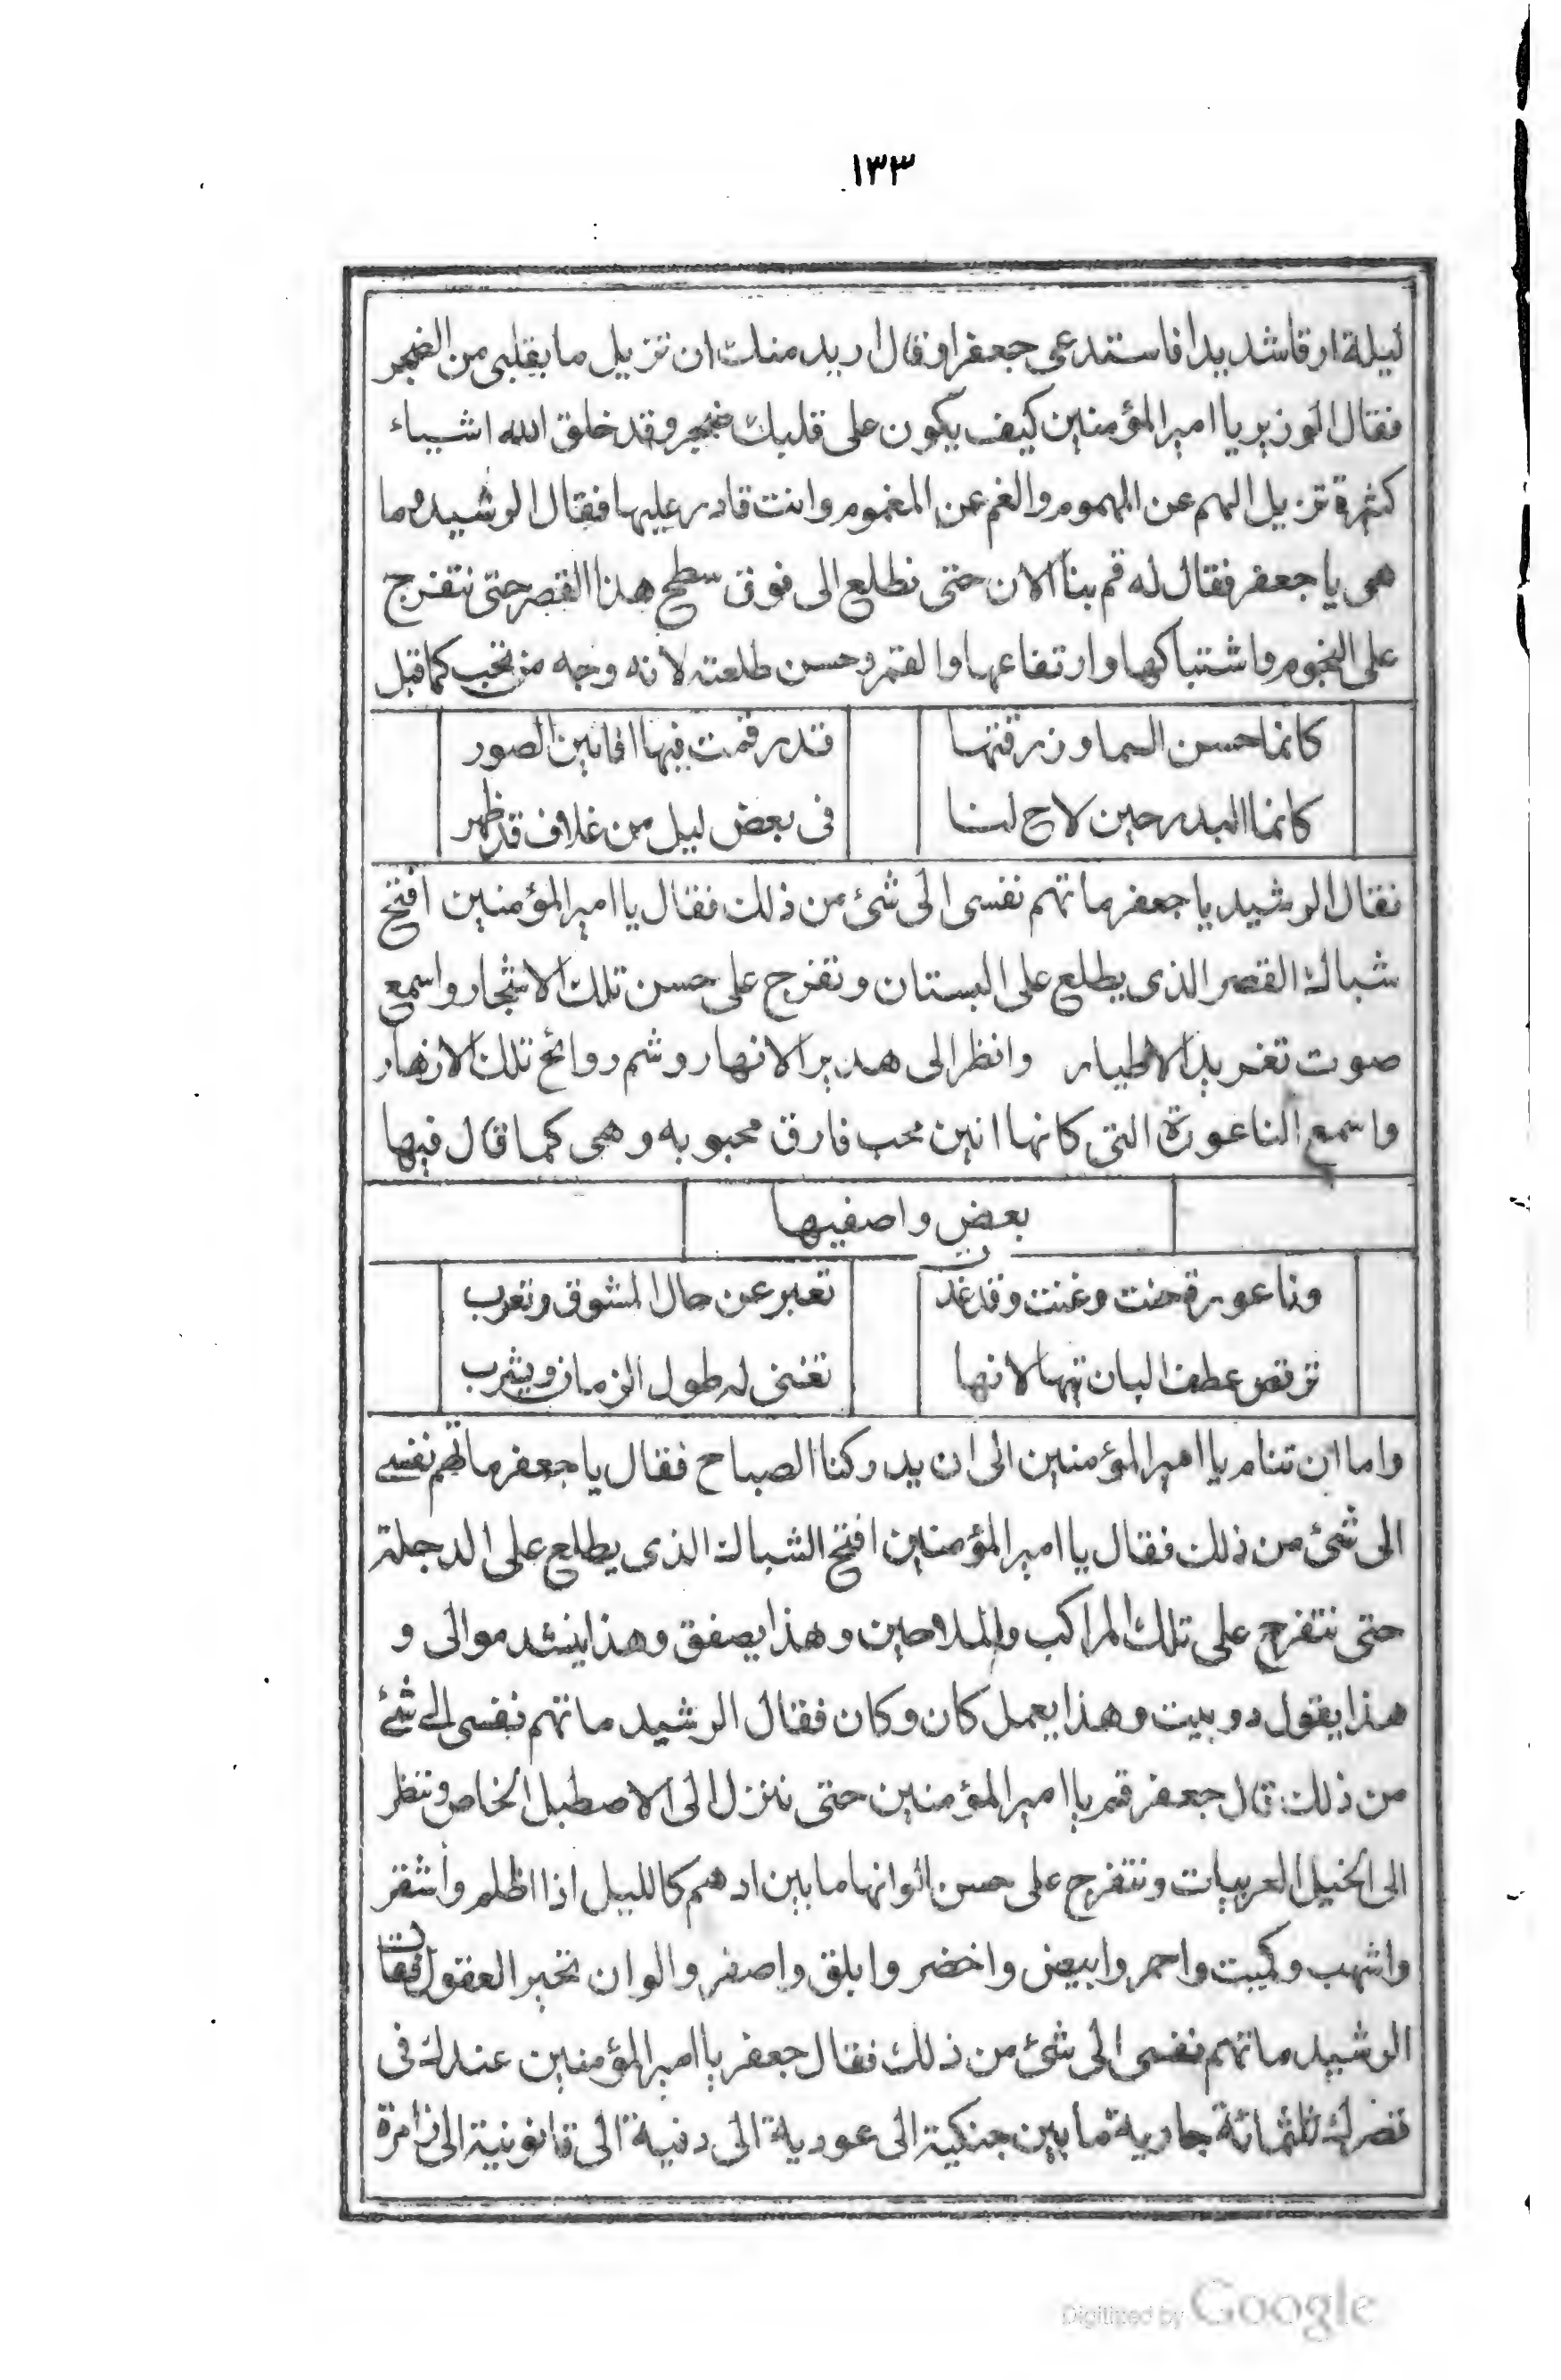 ١٣٣
ليلة ارقا شديدا فاستدعى جعفرا وقال اريد منك ان تزيل ما بقلبى من الضجر
فقال الوزير يا امير المؤمنين كيف يكون على قلبك ضجر وقد خلق الله اشياء
كثيرة تزيل الهم عن المهموم والغم عن المغموم وانت قادر عليها فقال الرشيد وما
هى يا جعفر فقال له قم بنا الان حتى نطلع الى فوق سطح هذا القصر حتى نتفرج
على النجوم واشتباكها وارتفاعها والقمر وحسن طلعته لانه وجه من نحب كما قيل
كانما حسن السما وزرقتها قد رقمت فيها افانين الصور
كانما البدر حين لاح لنا فى بعض ليل من غلاف قد ظهر
فقال الرشيد يا جعفر ما تهم نفسى الى شئ من ذلك فقال يا امير المؤمنين افتح
شباك القصر الذى يطلع على البستان وتفرج على حسن تلك الاشجار واسمع
صوت تغريد الاطيار وانظر الى هدير الانهار وشم روائح تلك الازهار
واسمع الناعورة التى كانها انين محب فارق محبوبه وهى كما قال فيها
بعض واصفيها
وناعورة حنت وغنت وقد غدت تعبر عن حال المشوق وتعرب
ترقص عطف البان تيها لانها تغنى له طول الزمان ويشرب
واما ان تنام يا امير المؤمنين الى ان يدركنا الصباح فقال يا جعفر ما تهم نفسى
الى شئ من ذلك فقال يا امير المؤمنين افتح الشباك الذى يطلع على الدجلة
حتى نتفرج على تلك المراكب والملاحين وهذا يصفق وهذا ينشد موالى و
هذا يقول دوبيت وهذا يعمل كان وكان فقال الرشيد ما تهم نفسى الى شئ
من ذلك قال جعفر قم يا امير المؤمنين حتى ننزل الى الاصطبل الخاص وننظر
الى الخيل العربيات ونتفرج على حسن الوانها ما بين ادهم كالليل اذا اظلم واشقر
واشهب وكميت واحمر وابيض واخضر وابلق واصفر والوان تحير العقول فقال
الرشيد ما تهم نفسى الى شئ من ذلك فقال جعفر يا امير المؤمنين عندك فى
قصرك ثلثمائة جارية ما بين جنكية الى عودية الى دفية الى قانونية الى زامرة
Digitized by Google